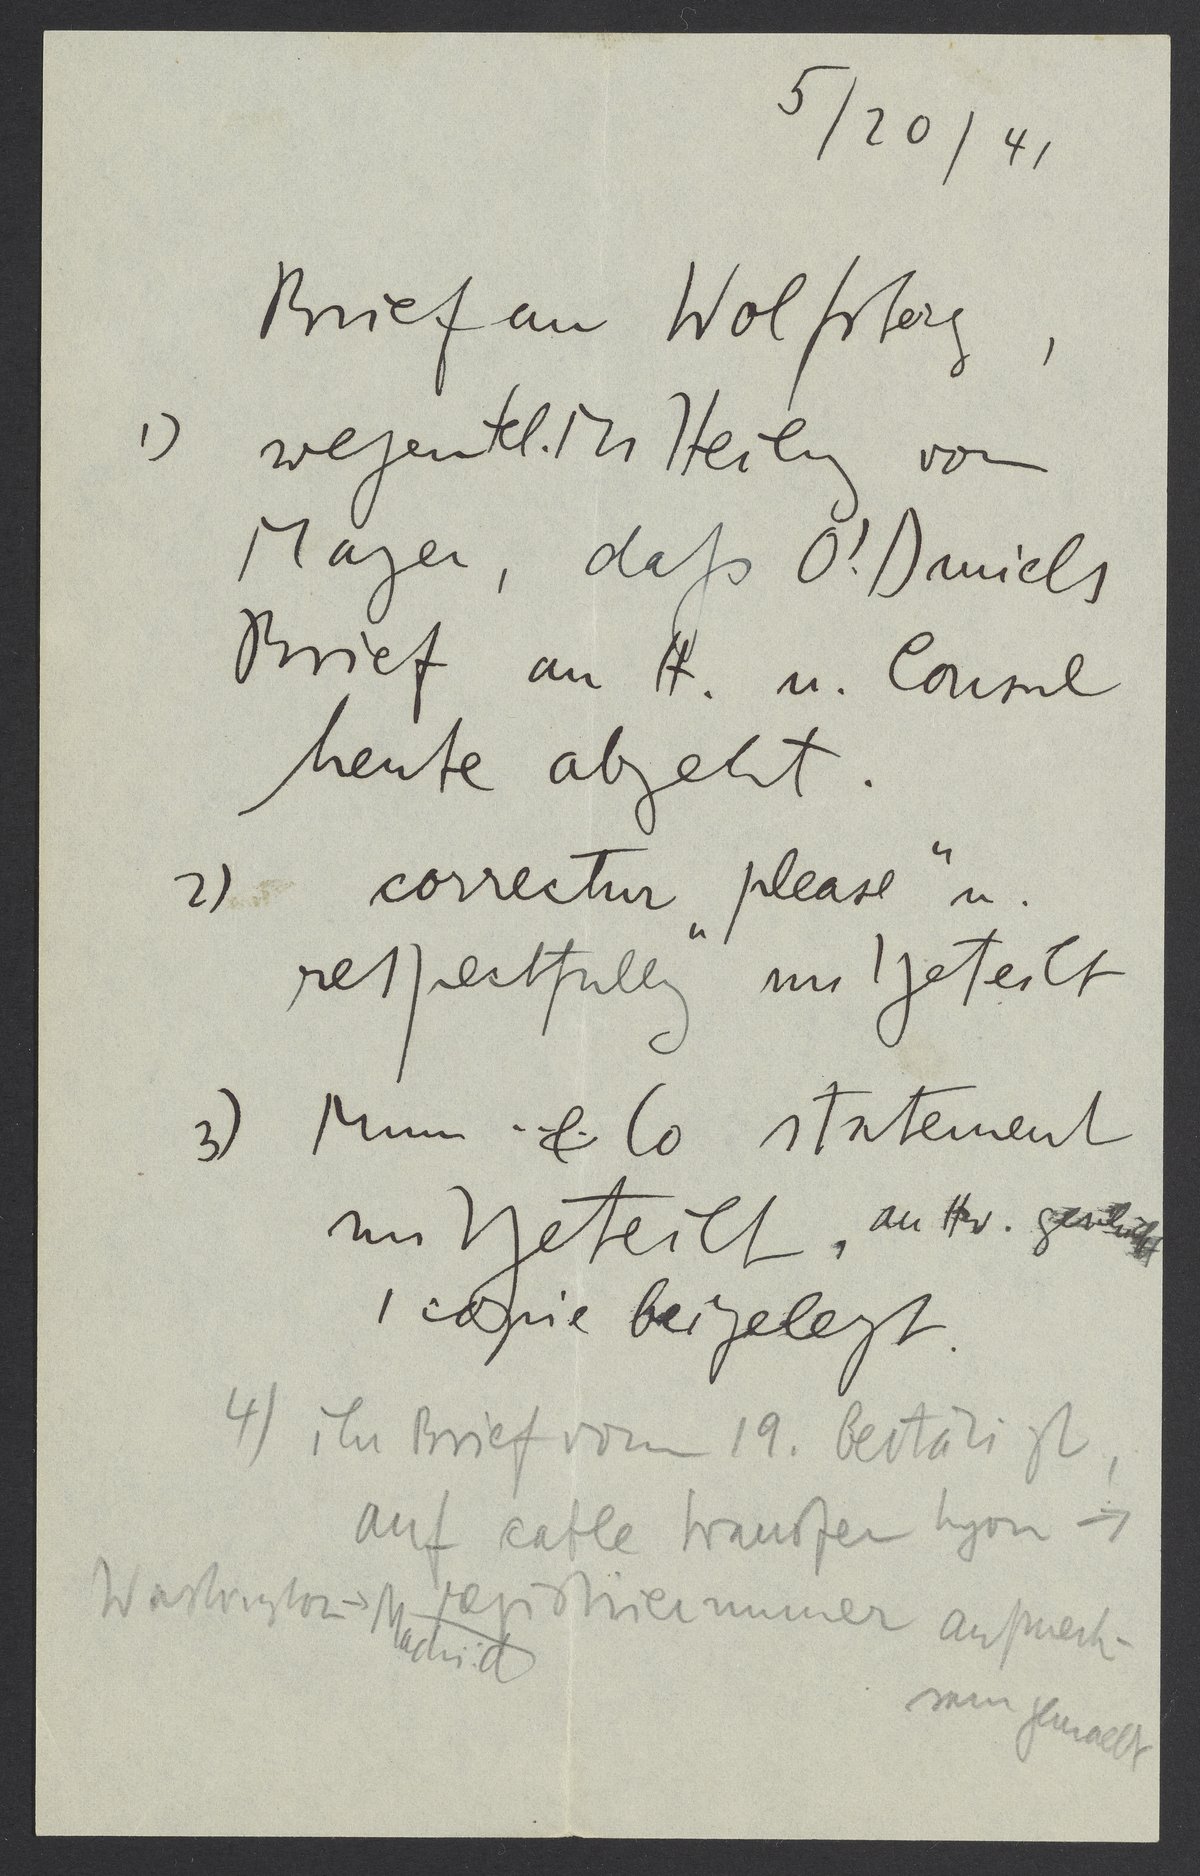 5/20/41
Brief an Wolfsberg,
1) wesentl. Mitteilung von
Mayer, daß O'Daniels
Brief an H. u. Consul
heute abgeht.
2) correctur „please“ u.
„respectfully“ mitgeteilt
3) Mum Co statement
mitgeteilt, an Hv. geschickt
1 copie beigelegt.
4) ihr Brief vom 19. bestätigt,
auf cable transfer Lyon →
Washington → Madrid registriernummer aufmerk-
sam gemacht